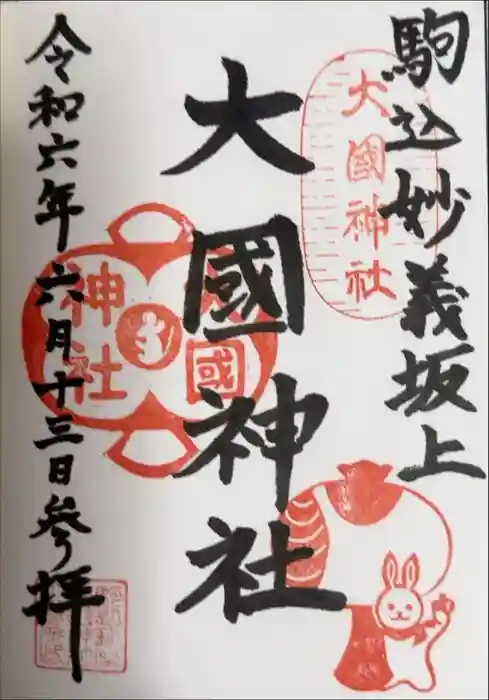 駒込妙義坂上
大國神社
大國神社
大國
神社
令和六年六月十三日参拝